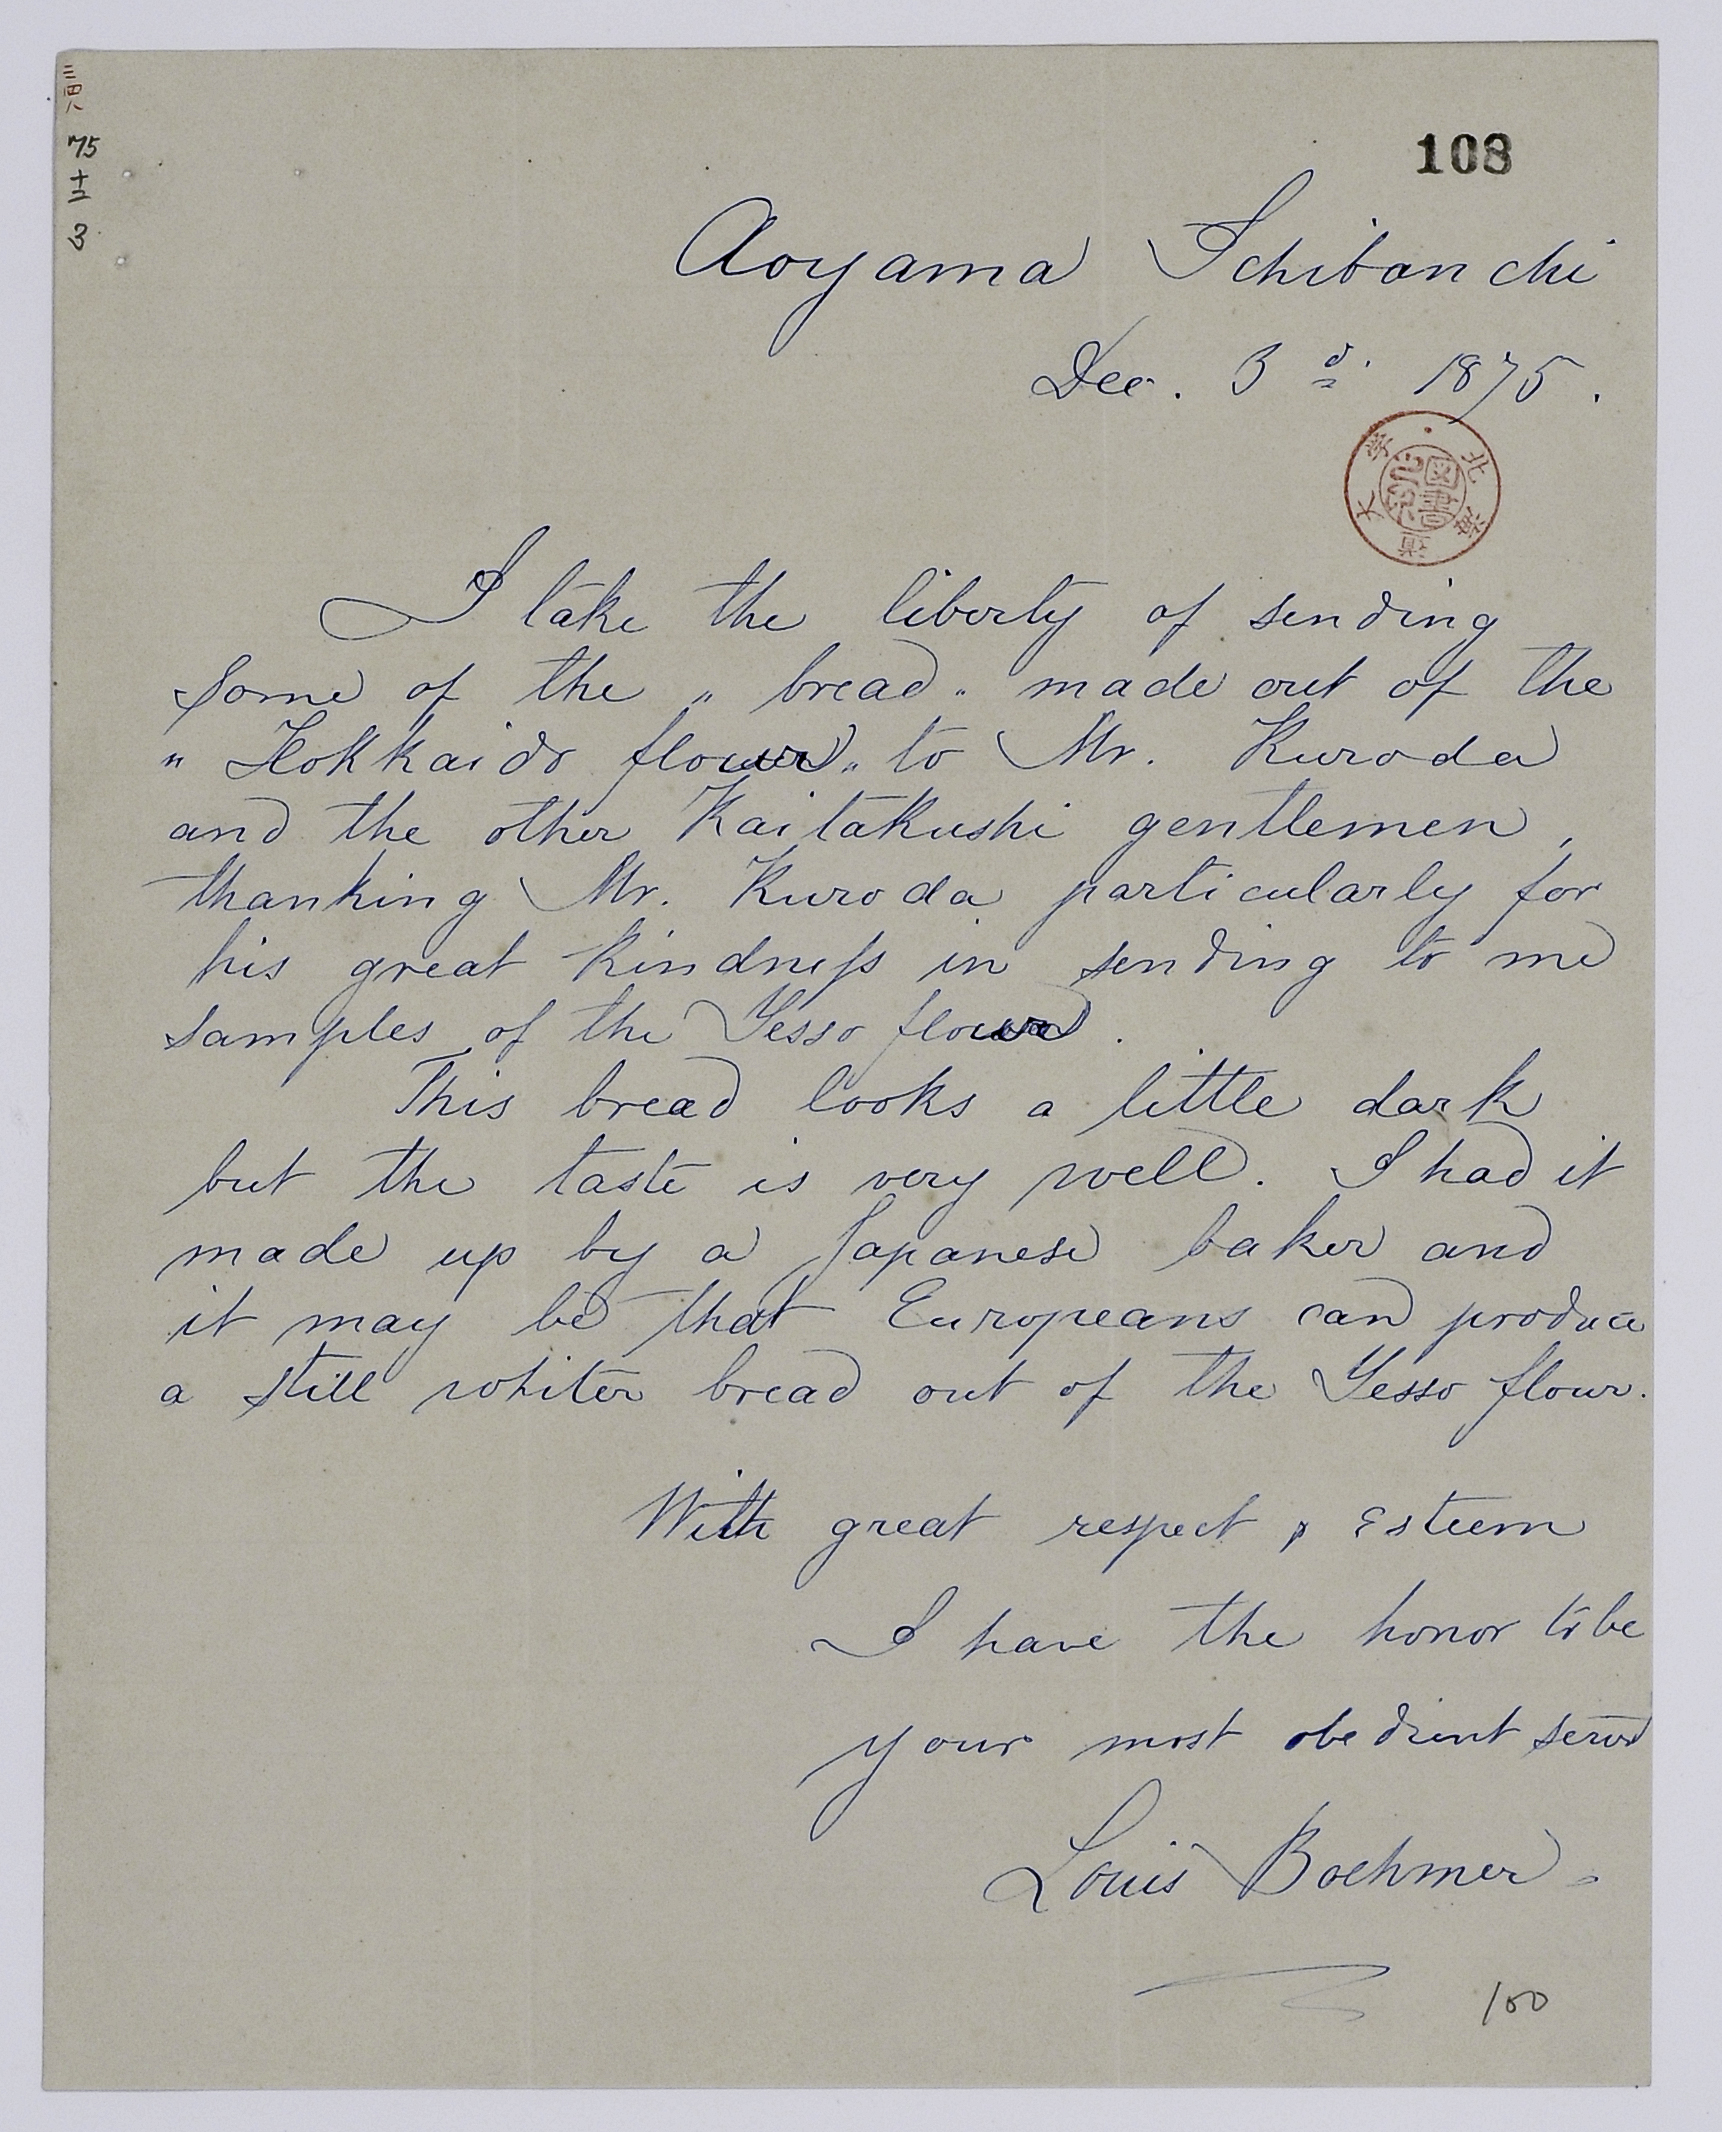 三四八
75
十二
3
108
Aoyama Ichibanchi
Dec. 3d. 1875.
北海道大學
圖書
I take the liberty of sending
some of the "bread" made out of the
"Hokkaido flour" to Mr. Kuroda
and the other Kaitakushi gentlemen,
thanking Mr. Kuroda particularly for
his great kindness in sending to me
samples of the Yesso flour.
This bread looks a little dark
but the taste is very well. I had it
made up by a Japanese baker and
it may be that Europeans can produce
a still whiter bread out of the Yesso flour.
With great respect & Esteem
I have the honor to be
your most obedient servt
Louis Boehmer
100